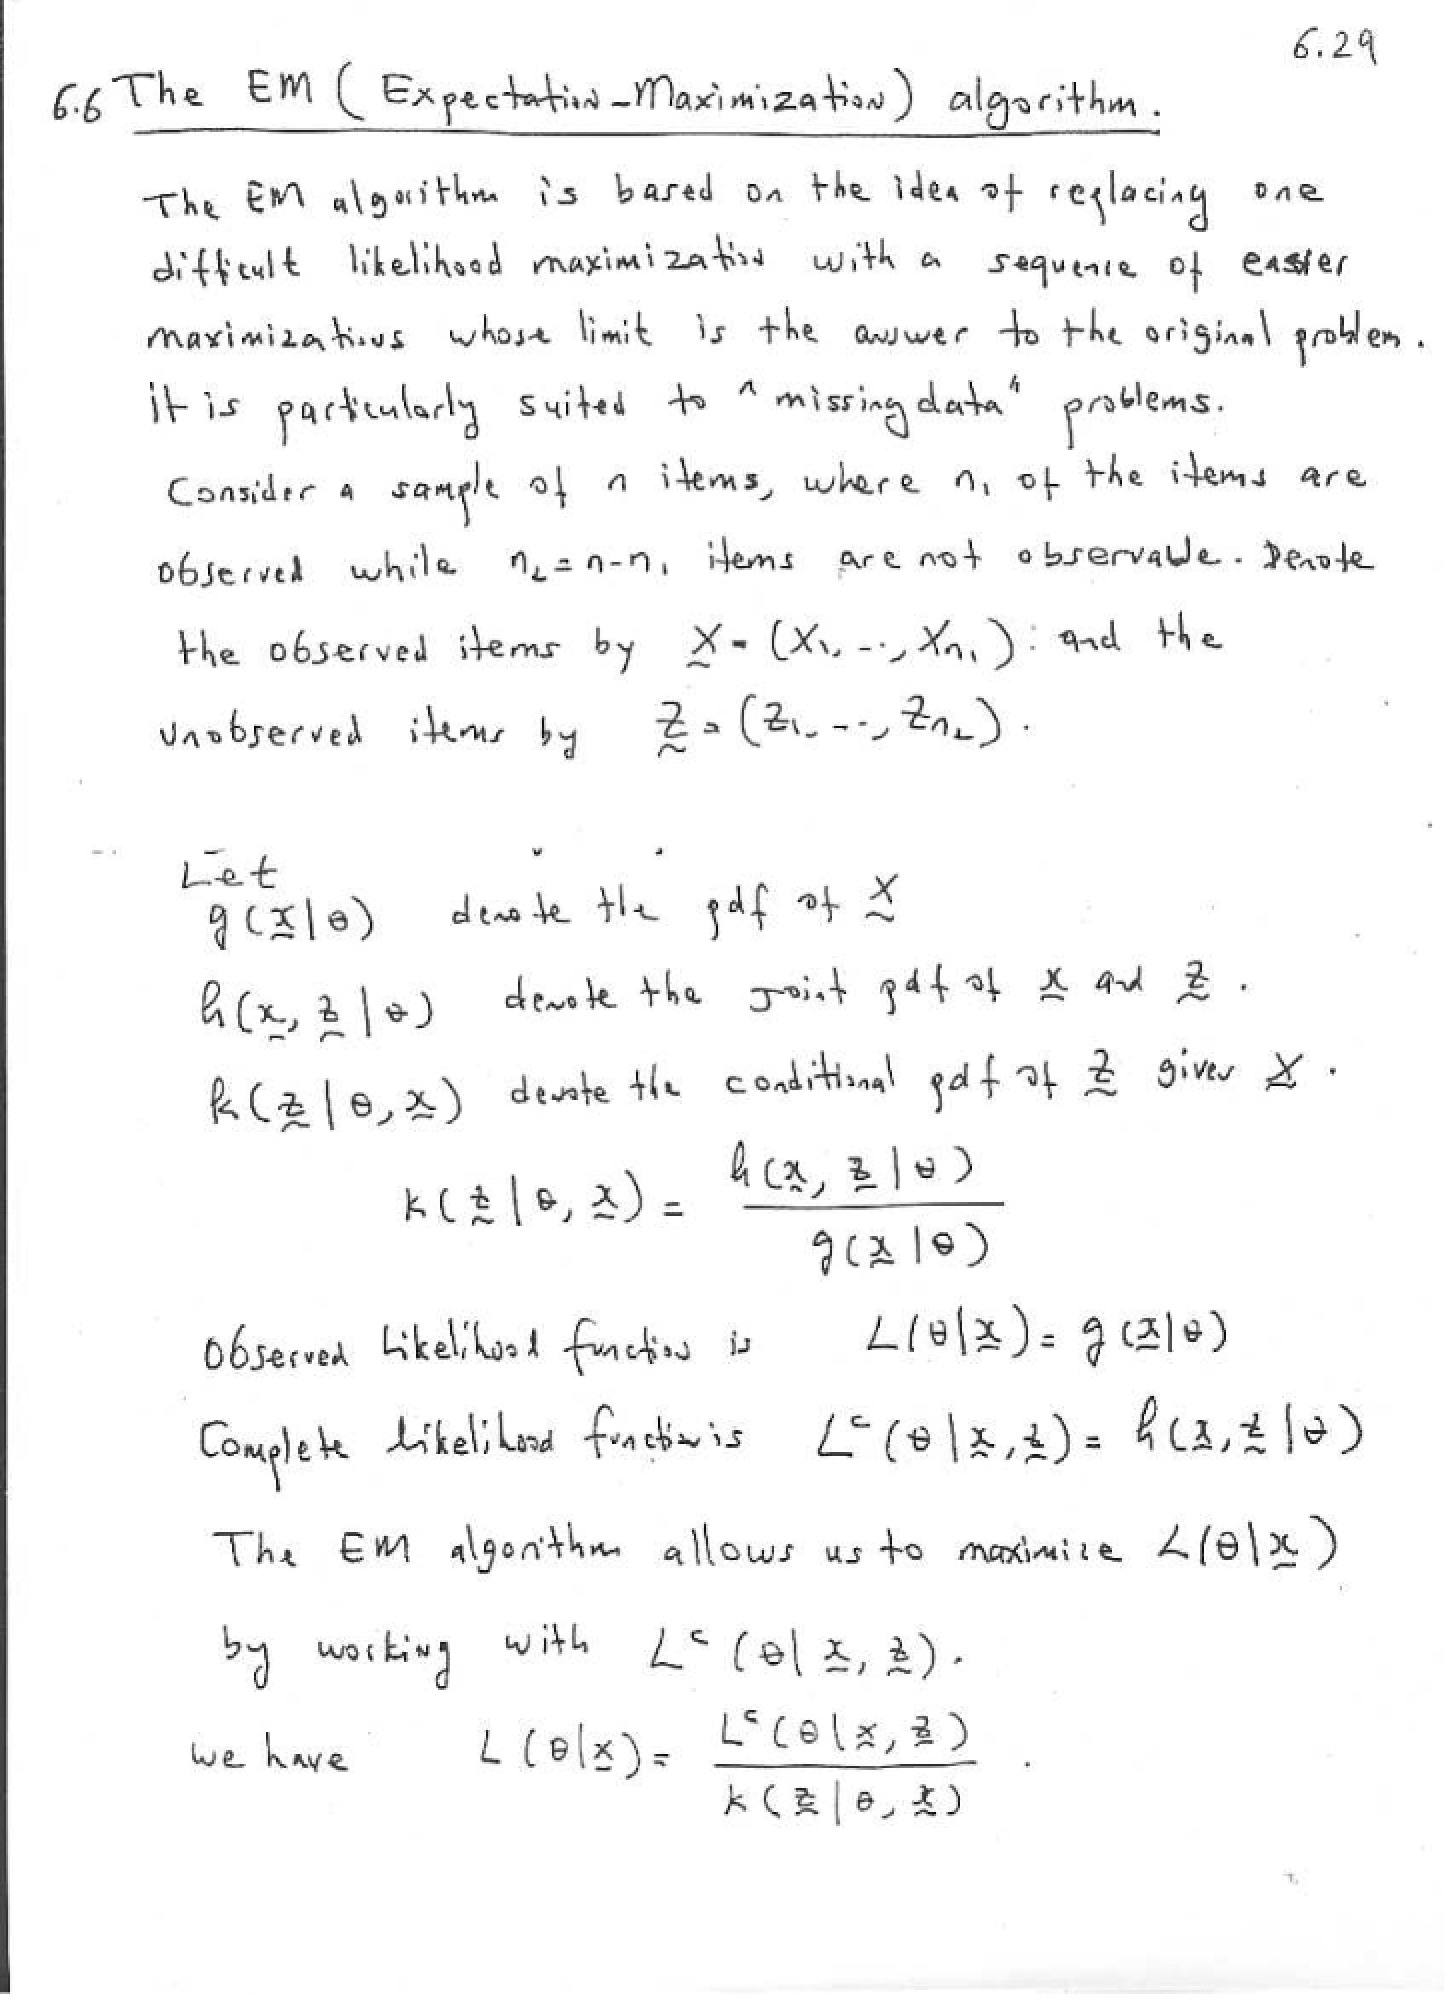 6.29
6.6 The EM (Expectation-Maximization) algorithm.
The EM algorithm is based on the idea of replacing one
difficult likelihood maximization with a sequence of easier
maximizations whose limit is the answer to the original problem.
it is particularly suited to "missing data" problems.
Consider a sample of n items, where n₁ of the items are
observed while n₂ = n-n₁ items are not observable. Denote
the observed items by X̰ = (X₁, ..., Xn₁): and the
unobserved items by Z̰ = (Z₁, ..., Zn₂).
Let
g(x̰|θ) denote the pdf of X̰
h(x̰, z̰|θ) denote the joint pdf of x̰ and z̰.
k(z̰|θ, x̰) denote the conditional pdf of z̰ given x̰.
k(z̰|θ, x̰) = h(x̰, z̰|θ) / g(x̰|θ)
Observed likelihood function is L(θ|x̰) = g(x̰|θ)
Complete likelihood function is Lᶜ(θ|x̰, z̰) = h(x̰, z̰|θ)
The EM algorithm allows us to maximize L(θ|x̰)
by working with Lᶜ(θ|x̰, z̰).
we have L(θ|x̰) = Lᶜ(θ|x̰, z̰) / k(z̰|θ, x̰) .